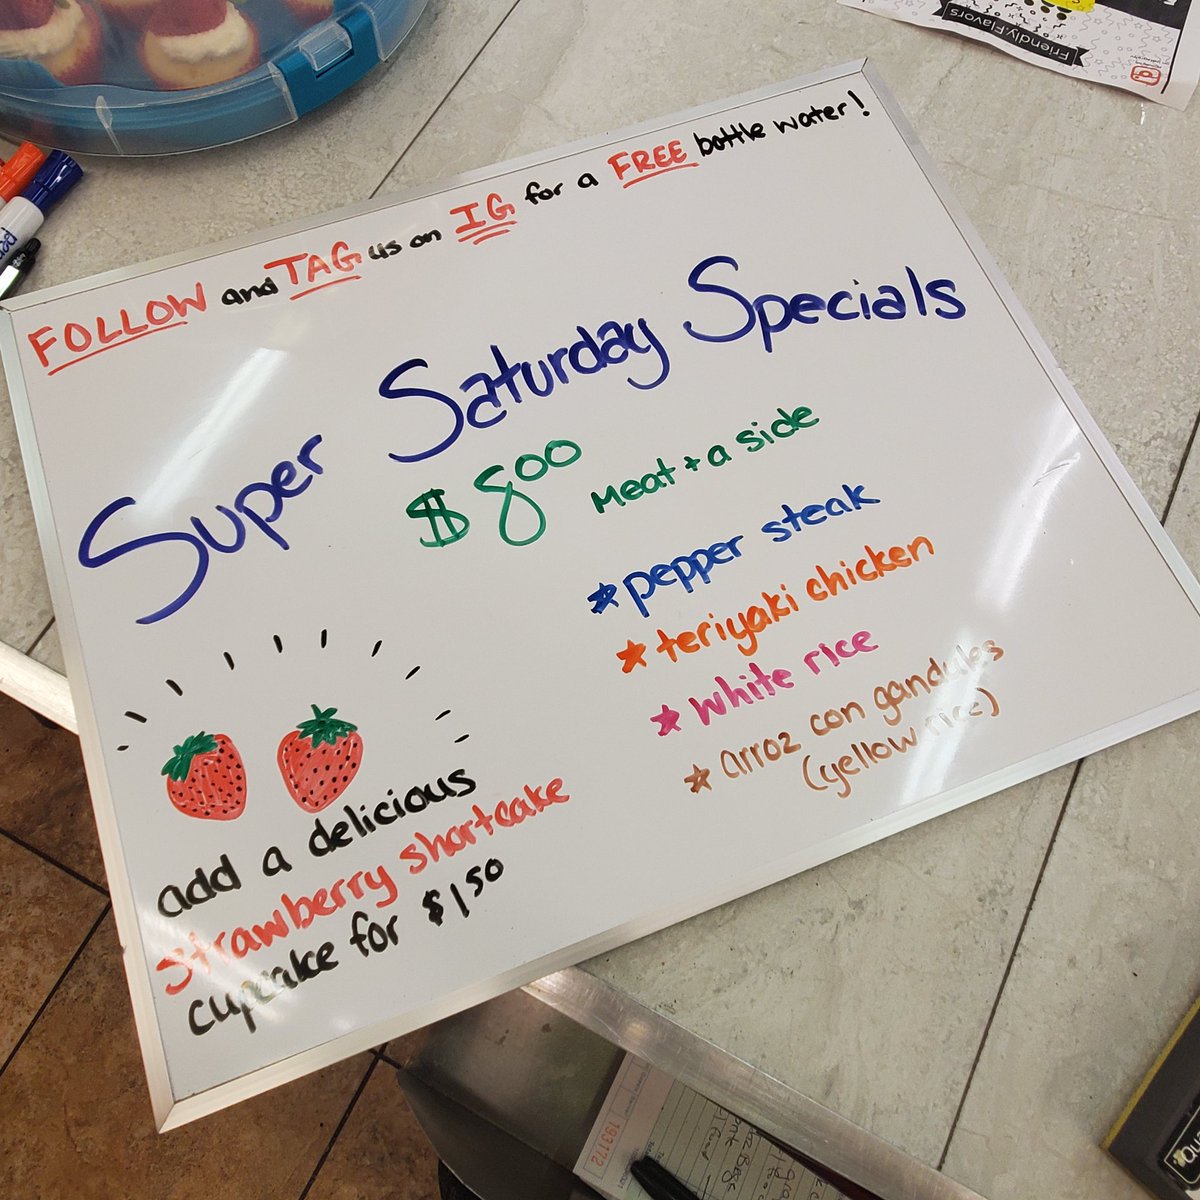 FOLLOW and TAG us on IG for a FREE bottle water!
Super Saturday Specials
$800 Meat + a side
pepper steak
teriyaki chicken
white rice
arroz con gandules
(yellow rice)
add a delicious
strawberry shortcake
cupcake for $1.50
Friendly.Flavors
193172